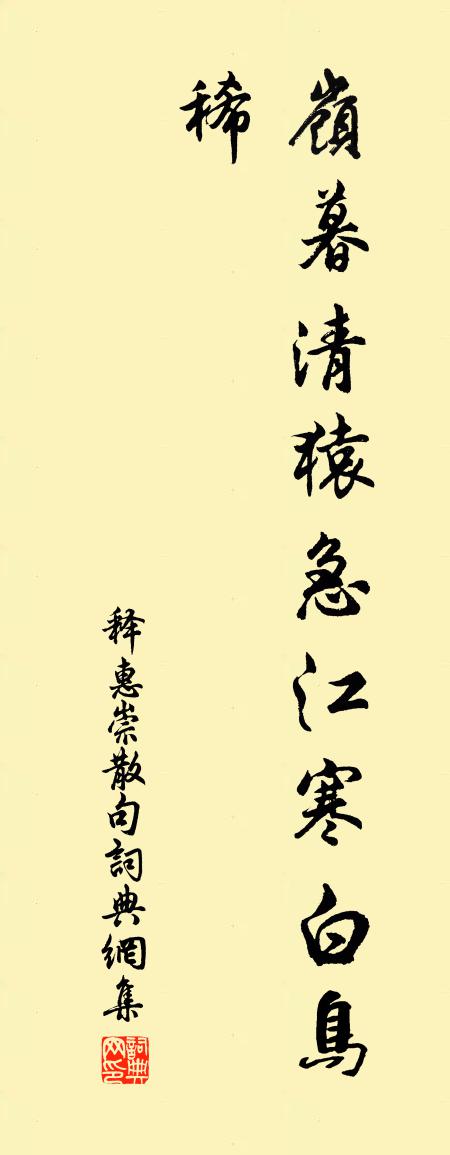 嶺暮清猿急江寒白鳥
稀
释惠崇散句詞典網集
詞典网印